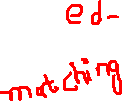 ed-
matching